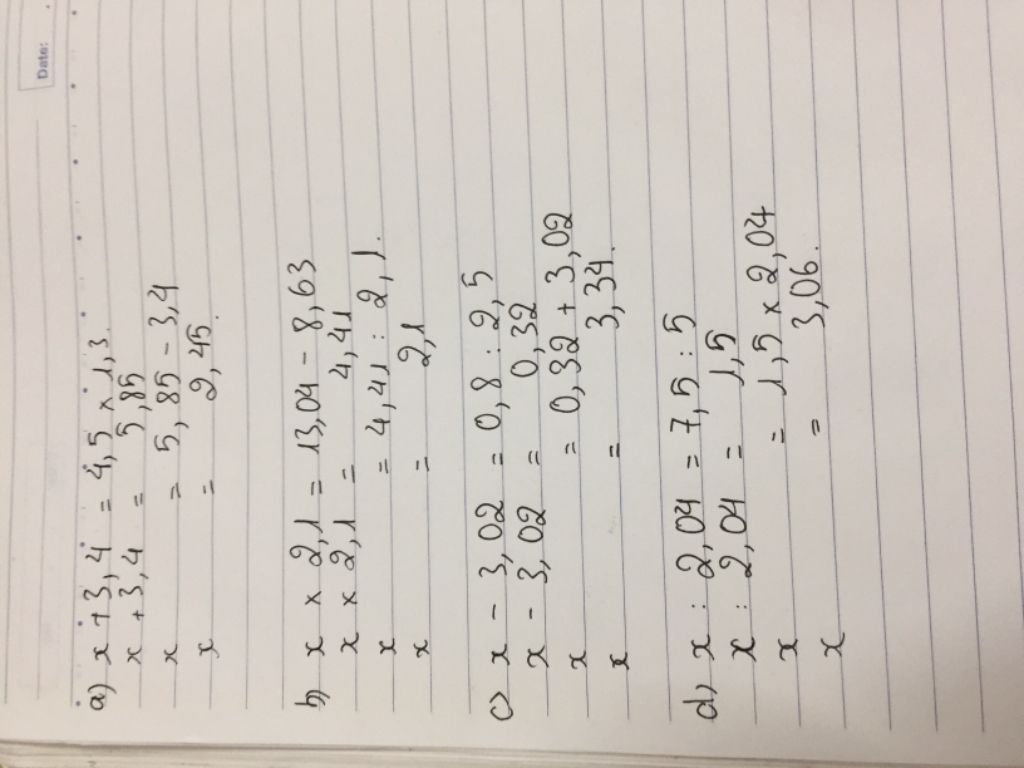 Date:
a) x + 3,4 = 4,5 x 1,3.
x + 3,4 = 5,85
x = 5,85 - 3,4
x = 2,45.
b) x x 2,1 = 13,04 - 8,63
x x 2,1 = 4,41
x = 4,41 : 2,1.
x = 2,1
c) x - 3,02 = 0,8 : 2,5
x - 3,02 = 0,32
x = 0,32 + 3,02
x = 3,34.
d) x : 2,04 = 7,5 : 5
x : 2,04 = 1,5
x = 1,5 x 2,04
x = 3,06.